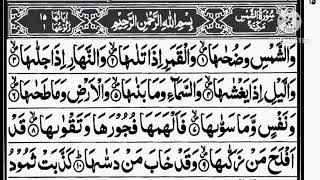 سُوْرَةُ الشَّمْسِ مَكِّيَّةٌ بِسْمِ اللّٰهِ الرَّحْمٰنِ الرَّحِيْمِ اٰيَاتُهَا ١٥ رُكُوْعُهَا ١
وَالشَّمْسِ وَضُحٰىهَا ١ وَالْقَمَرِ اِذَا تَلٰىهَا ٢ وَالنَّهَارِ اِذَا جَلّٰىهَا ٣
وَالَّيْلِ اِذَا يَغْشٰىهَا ٤ وَالسَّمَآءِ وَمَا بَنٰىهَا ٥ وَالْاَرْضِ وَمَا طَحٰىهَا ٦
وَنَفْسٍ وَّمَا سَوّٰىهَا ٧ فَاَلْهَمَهَا فُجُوْرَهَا وَتَقْوٰىهَا ٨ قَدْ
اَفْلَحَ مَنْ زَكّٰىهَا ٩ وَقَدْ خَابَ مَنْ دَسّٰىهَا ١٠ كَذَّبَتْ ثَمُوْدُ